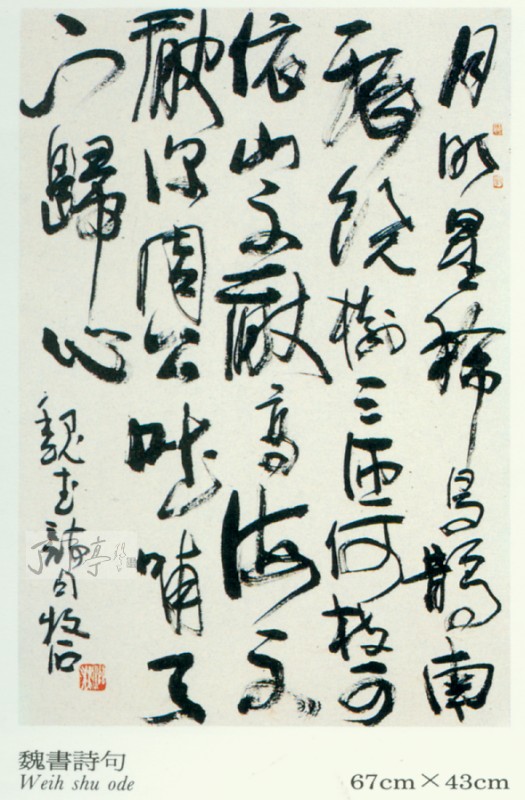 月明星稀烏鵲南
飛繞樹三匝何枝可
依山不厭高海不
厭深周公吐哺天
下歸心
魏武詩句牧石
魏書詩句
Weih shu ode
67cm×43cm